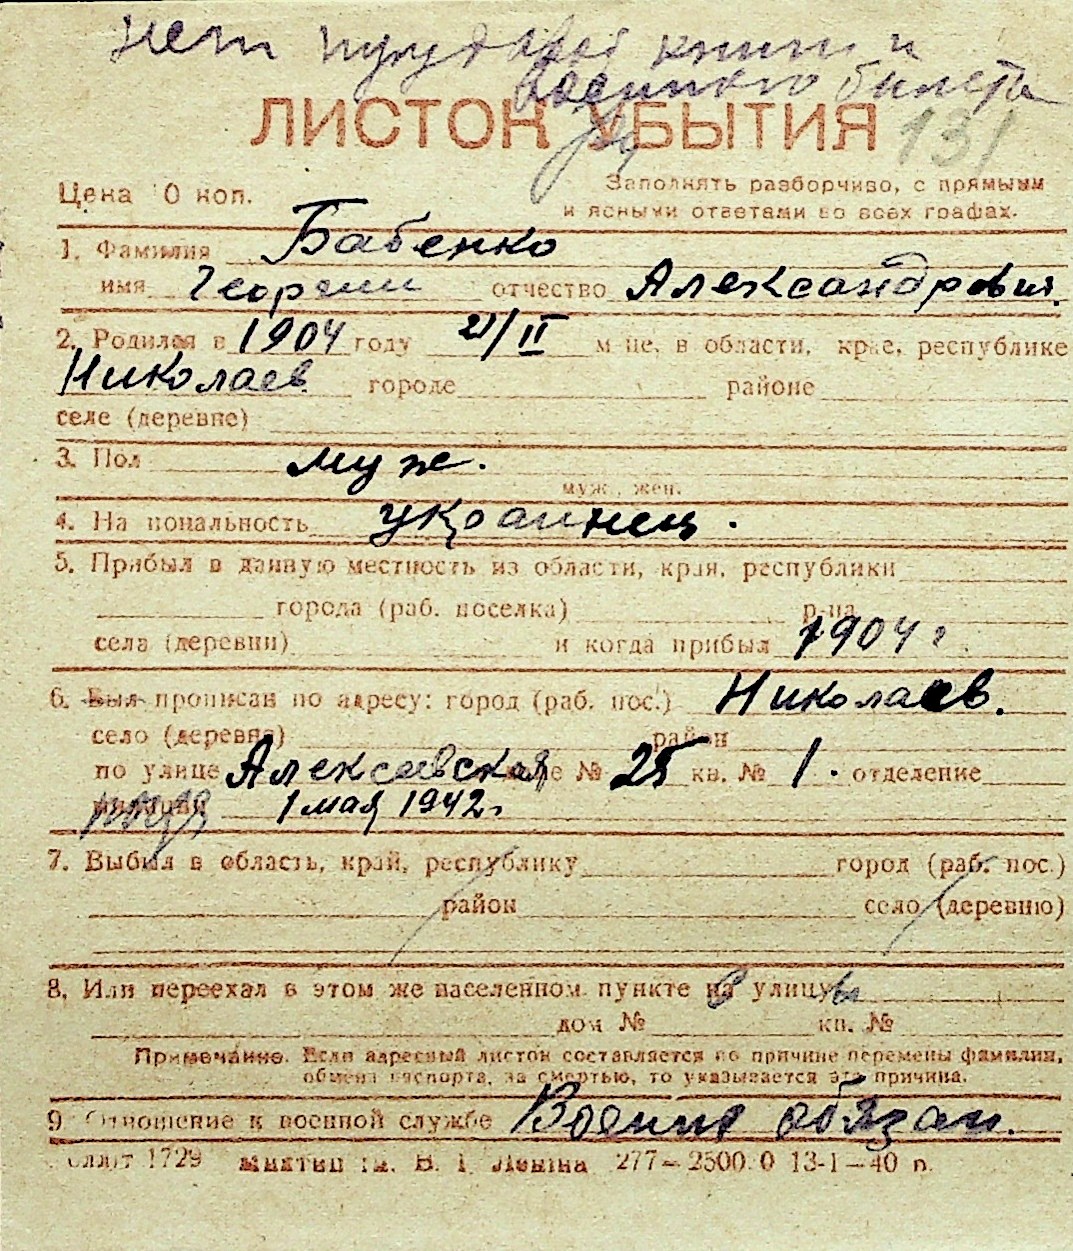 нет трудовой книги и
военного билета
ЛИСТОК УБЫТИЯ 131
Цена 10 коп. Заполнять разборчиво, с прямыми
и ясными ответами во всех графах.
1. Фамилия Бабенко
имя Георгий отчество Александрович.
2. Родился в 1904 году 21/II м-це, в области, крае, республике
Николаев. городе районе
селе (деревне)
3. Пол муж.
муж., жен.
4. Национальность украинец.
5. Прибыл в данную местность из области, края, республики
города (раб. поселка) р-на
села (деревни) и когда прибыл 1904 г
6. Был прописан по адресу: город (раб. пос.) Николаев.
село (деревня) район
по улице Алексеевская № 25 кв. № 1. отделение
1 мая 1942 г.
7. Выбыл в область, край, республику город (раб. пос.)
район село (деревню)
8. Или переехал в этом же населенном пункте на улицу
дом № кв. №
Примечание. Если адресный листок составляется по причине перемены фамилии,
обмена паспорта, за смертью, то указывается эта причина.
9. Отношение к военной службе Военно обязан.
1729 им. В. І. Леніна 277—2500.0 13-1—40 р.